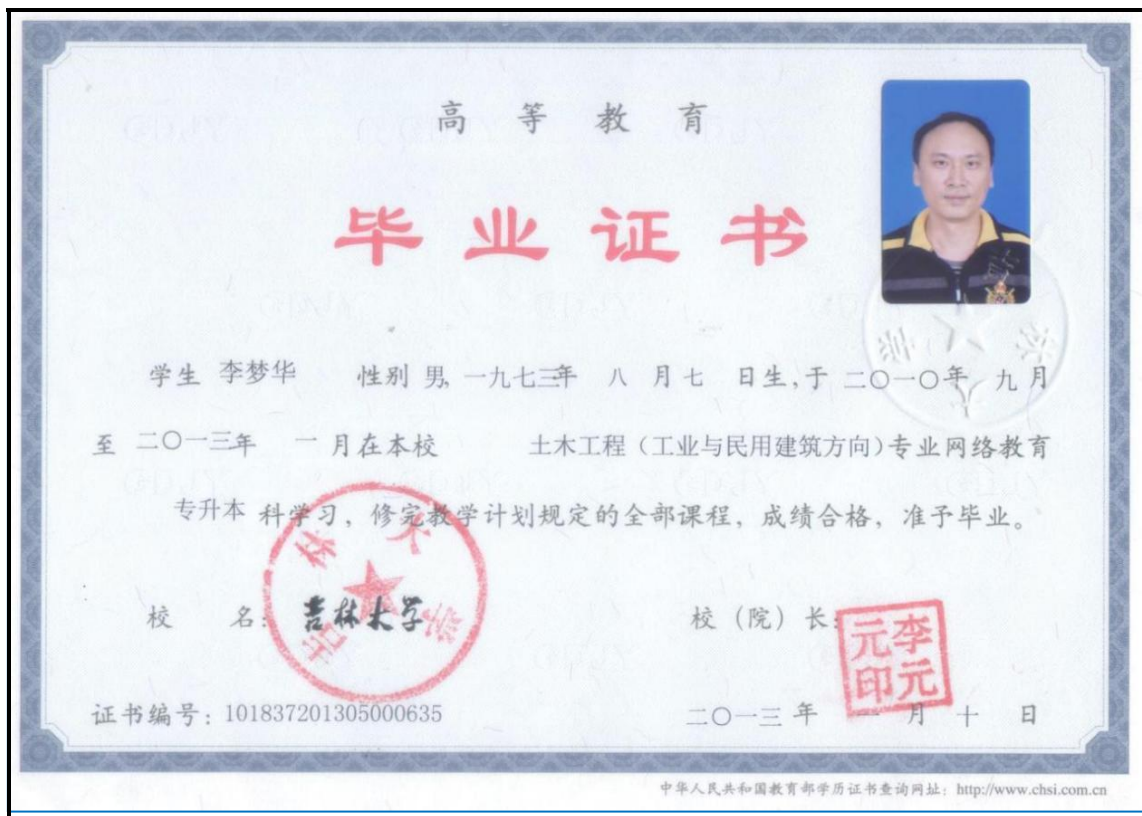 高等教育
毕业证书
学生 李梦华 性别 男, 一九七三年 八 月 七 日生, 于 二〇一〇年 九 月
至 二〇一三年 一 月在本校 土木工程（工业与民用建筑方向）专业网络教育
专升本 科学习，修完教学计划规定的全部课程，成绩合格，准予毕业。
校 名： 吉林大学
校（院）长：
吉林大学
李元元印
证书编号：101837201305000635
二〇一三 年 一 月 十 日
中华人民共和国教育部学历证书查询网址：http://www.chsi.com.cn